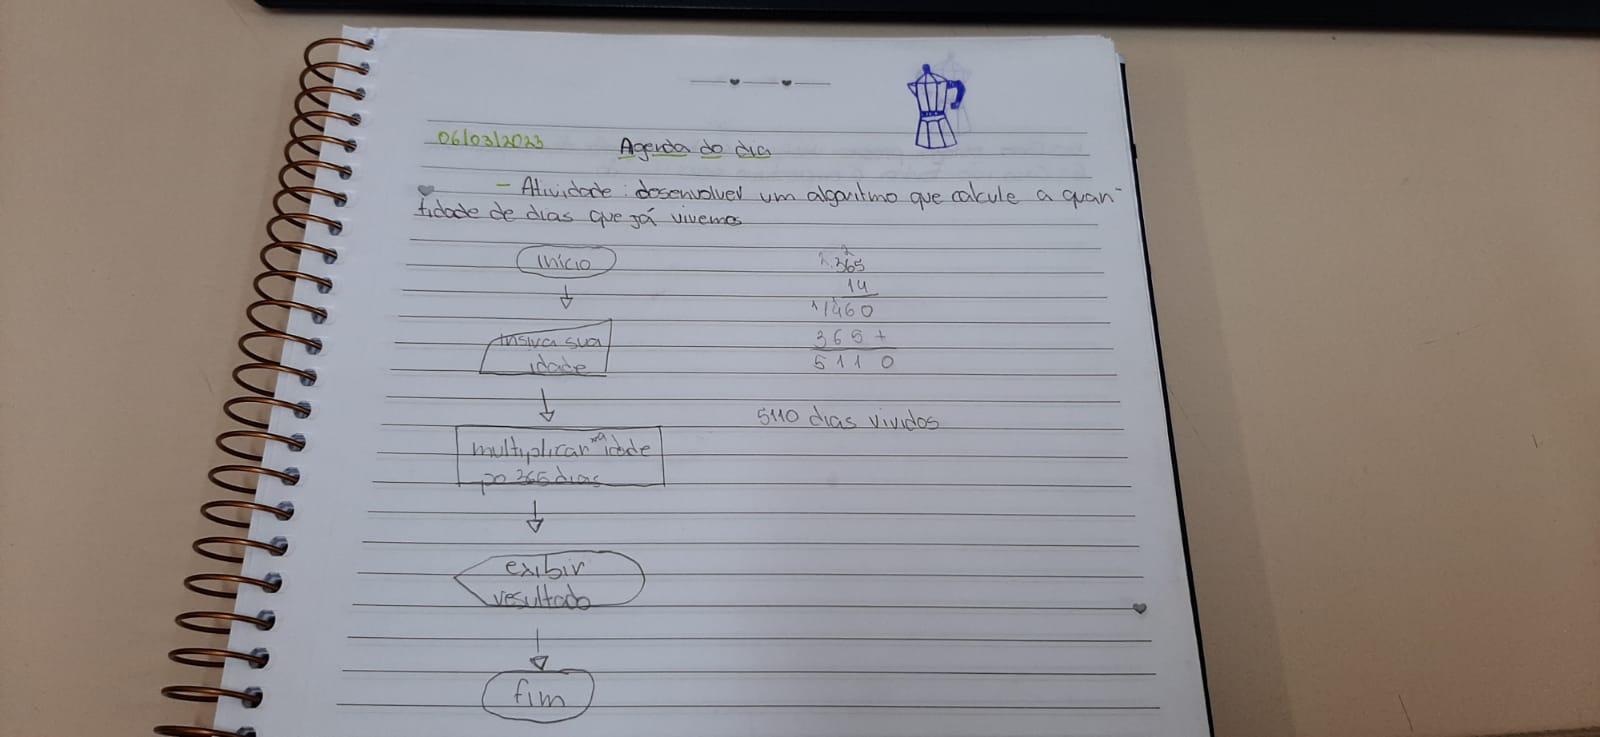 06/03/2023
Agenda do dia
- Atividade: desenvolver um algoritmo que calcule a quan-
tidade de dias que já vivemos
início
insira sua
idade
multiplicar idade
po 365 dias
exibir
resultado
fim
365
14
1460
365 +
5110
5110 dias vividos